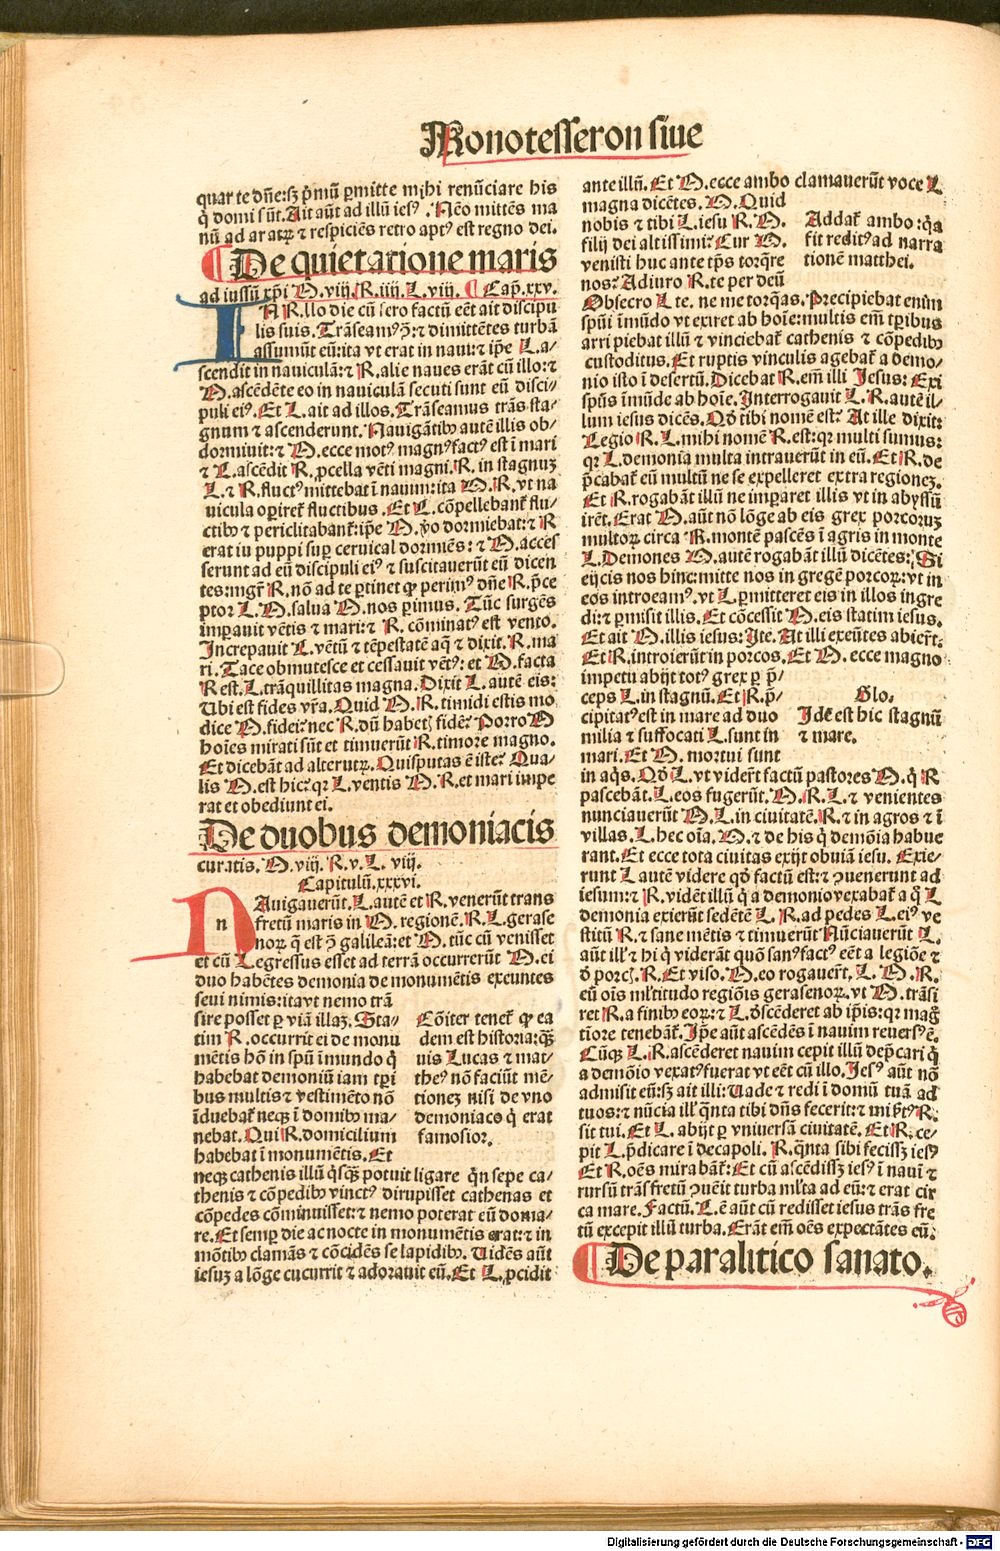 Monotesseron siue
quar te dñe:sꝫ p̄mũ ꝑmitte mihi renũciare his
q̇ domi sũt. Ait aũt ad illũ iesꝰ. Nẽo mittẽs ma
nũ ad aratꝝ ⁊ respiciẽs retro aptꝰ est regno dei.
De quietatione maris
ad iussũ xp̃i M.viij.R.iiij.L.viij. Cap̃.xxv.
IN R.illo die cũ sero factũ eẽt ait discipu
lis suis. Trãseamꝰ: ⁊ dimittẽtes turbã
assumũt eũ:ita vt erat in naui:⁊ ip̃e L.a⸗
scendit in nauiculã:⁊ R.alie naues erãt cũ illo:⁊
M.ascẽdẽte eo in nauiculã secuti sunt eũ disci⸗
puli eiꝰ. Et L. ait ad illos. Trãseamus trãs sta⸗
gnum ⁊ ascenderunt. Nauigãtibꝰ autẽ illis ob⸗
dormiuit:⁊ M.ecce motꝰ magnꝰ factꝰ est ĩ mari
⁊ L.ascẽdit R.ꝓcella vẽti magni.R. in stagnuꝫ
L.⁊ R.fluctꝰ mittebat ĩ nauim:ita M.R.vt na
uicula oꝑiret̃ fluctibus. Et L. cõpellebant̃ flu⸗
ctibꝰ ⁊ periclitabant̃:ip̃e M. ꝟo dormiebat:⁊ R
erat iu puppi suꝑ ceruical dormiẽs: ⁊ M.acces
serunt ad eũ discipuli eiꝰ ⁊ suscitauerũt eũ dicen
tes:mgr̃ R.nõ ad te ꝑtinet qꝛ perimꝰ dñe R.p̃ce
ptor L.M.salua M.nos ꝑimus. Tũc surgẽs
imꝑauit vẽtis ⁊ mari:⁊ R. cõminatꝰ est vento.
Increpauit L.vẽtũ ⁊ tẽpestatẽ aq̃ ⁊ dixit.R.ma
ri.Tace obmutesce et cessauit vẽtꝰ: et M.facta
R est.L.trãquillitas magna.Dixit L.autẽ eis:
Ubi est fides vr̃a.Quid M.R.timidi estis mo
dice M.fidei:nec R.dũ habetꝭ fidẽ? Porro M
hoĩes mirati sũt et timuerũt R.timore magno.
Et dicebãt ad alterutꝝ.Quisputas ẽ iste? Qua⸗
lis M.est hic:qꝛ L.ventis M.R.et mari impe
rat et obediunt ei.
De duobus demoniacis
curatis. M.viij. R.v.L. viij.
Capitulũ.xxxvi.
Nauigauerũt.L.autẽ et R.venerũt trans
fretũ maris in M.regionẽ.R.L.gerase
noꝝ q̃ est ꝯ̃ galileã:et M. tũc cũ venisset
et cũ L egressus esset ad terrã occurrerũt M.ei
duo habẽtes demonia de monumẽtis exeuntes
seui nimis:itavt nemo trã
sire posset ꝑ viã illaꝫ. Sta⸗
tim R.occurrit ei de monu
mẽtis hõ in spũ ĩmundo q̇
habebat demoniũ iam tp̃i
bus multis ⁊ vestimẽto nõ
ĩduebat̃ neqꝫ ĩ domibꝰ ma⸗
nebat.Qui R.domicilium
habebat ĩ monumẽtis.Et
Cõiter tenet̃ qꝛ ea
dem est historia:qꝫ
uis Lucas ⁊ mat⸗
theꝰ nõ faciũt mẽ⸗
tioneꝫ nisi de vno
demoniaco q̇ erat
famosior.
neqꝫ cathenis illũ q̇sqꝫ potuit ligare q̃n sepe ca⸗
thenis ⁊ cõpedibꝰ vinctꝰ dirupisset cathenas et
cõpedes cõminuisset:⁊ nemo poterat eũ doma⸗
re.Et semꝑ die ac nocte in monumẽtis erat:⁊ in
mõtibꝰ clamãs ⁊ cõcidẽs se lapidibꝰ. Uidẽs aũt
iesuꝫ a lõge cucurrit ⁊ adorauit eũ.Et L.ꝓcidit
ante illũ. Et M.ecce ambo clamauerũt voce L
magna dicẽtes. M. Quid
nobis ⁊ tibi L.iesu R.M.
filij dei altissimi? Cur M.
venisti huc ante tp̃s torq̃re
nos? Adiuro R.te per deũ
Addat̃ ambo:q̇a
fit reditꝰad narra
tionẽ matthei.
Obsecro L te. ne me torq̃as. Precipiebat enim
spũi ĩmũdo vt exiret ab hoĩe:multis em̃ tp̃ribus
arri piebat illũ ⁊ vinciebat̃ cathenis ⁊ cõpedibꝰ
custoditus.Et ruptis vinculis agebat̃ a demo⸗
nio isto ĩ desertũ.Dicebat R.em̃ illi Jesus: Exi
spũs ĩmũde ab hoĩe.Interrogauit L.R.autẽ il⸗
lum iesus dicẽs.Qḋ tibi nomẽ est? At ille dixit:
Legio R.L.mihi nomẽ R.est:qꝛ multi sumus:
qꝛ L.demonia multa intrauerũt in eũ.Et R.de
p̃cabat̃ eũ multũ ne se expelleret extra regioneꝫ.
Et R.rogabãt illũ ne imꝑaret illis vt in abyssũ
irẽt.Erat M.aũt nõ lõge ab eis grex porcoruꝫ
multoꝝ circa R.montẽ pascẽs ĩ agris in monte
L.Demones M.autẽ rogabãt illũ dicẽtes: Si
eijcis nos hinc:mitte nos in gregẽ porcoꝝ:vt in
eos introeamꝰ.vt L.ꝑmitteret eis in illos ingre
di:⁊ ꝑmisit illis. Et cõcessit M.eis statim iesus.
Et ait M.illis iesus:Ite.At illi exeũtes abiert̃.
Et R.introierũt in porcos.Et M.ecce magno
impetu abijt totꝰ grex ꝑ p̃⸗
ceps L.in stagnũ.Et R.p̃⸗
cipitatꝰest in mare ad duo
milia ⁊ suffocati L.sunt in
mari.Et M. mortui sunt
Glo.
Idẽ est hic stagnũ
⁊ mare.
in aq̇s.Qḋ L.vt vidert̃ factũ pastores M.q̇ R
pascebãt.L.eos fugerũt.M.R.L.⁊ venientes
nunciauerũt M.L.in ciuitatẽ.R.⁊ in agros ⁊ ĩ
villas.L.hec oĩa.M.⁊ de his q̇ demõia habue
rant.Et ecce tota ciuitas exijt obuiã iesu. Exie⸗
runt L autẽ videre qḋ factũ est:⁊ ꝯuenerunt ad
iesum:⁊ R.vidẽt illũ q̇ a demonio vexabat̃ a q̇ L
demonia exierũt sedẽtẽ L.R.ad pedes L.eiꝰ ve
stitũ R.⁊ sane mẽtis ⁊ timuerũt Nũciauerũt L.
aũt ill̃ ⁊ hi q̇ viderãt quõ sanꝰfactꝰ eẽt a legiõe ⁊
ḋ porcꝭ.R.Et viso.M.eo rogauert̃.L.M.R.
eũ oĩs ml̃titudo regiõis gerasenoꝝ.vt M.trãsi
ret R.a finibꝰ eoꝝ:⁊ L.ꝺscẽderet ab ip̃is:qꝛ mag̃
tiore tenebãt̃.Ip̃e aũt ascẽdẽs ĩ nauim reuersꝰẽ.
Cũqꝫ L.R.ascẽderet nauim cepit illũ dep̃cari q̇
a demõio vexatꝰfuerat vt eẽt cũ illo.Iesꝰ aũt nõ
admisit eũ:sꝫ ait illi:Uade ⁊ redi ĩ domũ tuã ad
tuos:⁊ nũcia ill̃ q̃nta tibi dñs fecerit:⁊ mis̃tꝰ R.
sit tui. Et L. abijt ꝑ vniuersã ciuitatẽ. Et R.ce⸗
pit L.p̃dicare ĩ decapoli. R.q̃nta sibi fecissꝫ iesꝰ
Et R.oẽs mirabãt̃:Et cũ ascẽdissꝫ iesꝰ ĩ nauĩ ⁊
rursũ trãs fretũ ꝯuẽit turba ml̃ta ad eũ:⁊ erat cir
ca mare.Factũ.L.ẽ aũt cũ redisset iesus trãs fre
tũ excepit illũ turba. Erãt em̃ oẽs expectãtes eũ.
De paralitico sanato.
Digitalisierung gefördert durch die Deutsche Forschungsgemeinschaft - DFG